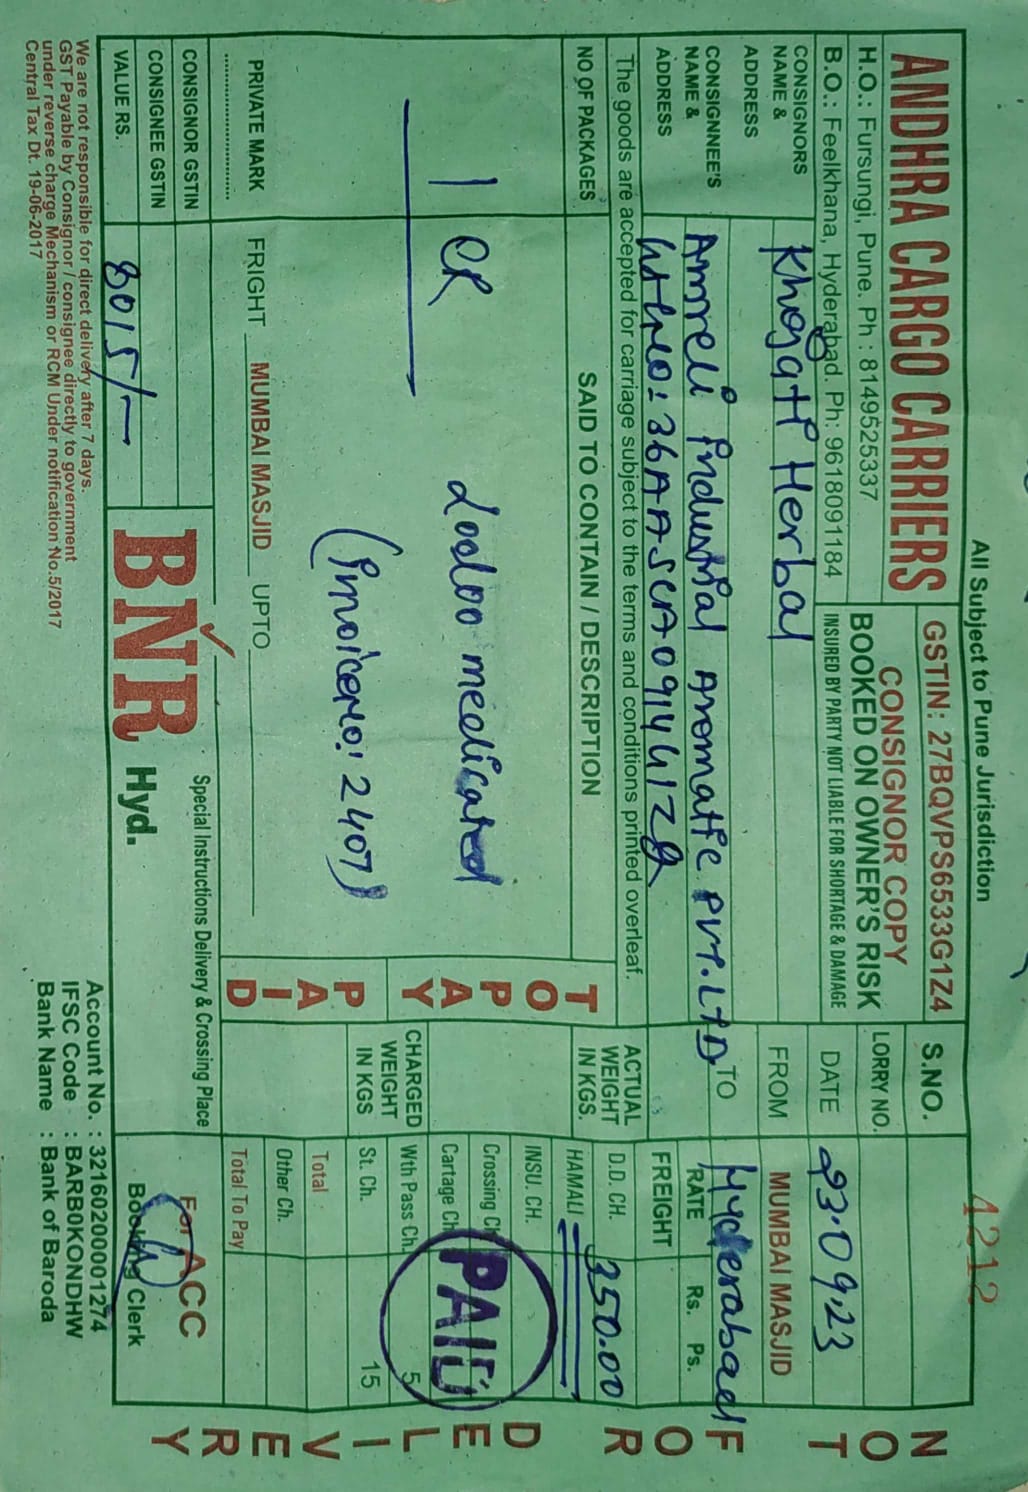 All Subject to Pune Jurisdiction
4212
ANDHRA CARGO CARRIERS
H.O.: Fursungi, Pune. Ph : 8149525337
B.O.: Feelkhana, Hyderabad. Ph: 9618091184
GSTIN: 27BQVPS6533G1Z4
CONSIGNOR COPY
BOOKED ON OWNER'S RISK
INSURED BY PARTY NOT LIABLE FOR SHORTAGE & DAMAGE
S.NO.
LORRY NO.
DATE 23.09.23
CONSIGNORS
NAME &
ADDRESS
Khogati Herbal
FROM MUMBAI MASJID
CONSIGNNEE'S
NAME &
ADDRESS
Amreli industrial Aromatic PVT.LTD
TO Hyderabad
The goods are accepted for carriage subject to the terms and conditions printed overleaf.
NO OF PACKAGES
SAID TO CONTAIN / DESCRIPTION
TO PAY
PAID
ACTUAL
WEIGHT
IN KGS.
CHARGED
WEIGHT
IN KGS
RATE Rs. Ps.
FREIGHT
D.D. CH. 350.00
HAMALI
INSU. CH.
Crossing Ch
Cartage Ch
Wth Pass Ch. 5
St. Ch. 15
Total
Other Ch.
Total To Pay
PAID
1 CR
Lodoo medicated
(invoiceno: 2407)
PRIVATE MARK FRIGHT MUMBAI MASJID UPTO
CONSIGNOR GSTIN
CONSIGNEE GSTIN
VALUE RS. 8015/-
BNR Hyd.
Special Instructions Delivery & Crossing Place
For ACC
Booking Clerk
We are not responsible for direct delivery after 7 days.
GST Payable by Consignor / consignee directly to government
under reverse charge Mechanism or RCM Under notification No.5/2017
Central Tax Dt. 19-06-2017
Account No. : 32160200001274
IFSC Code : BARB0KONDHW
Bank Name : Bank of Baroda
NOT FOR DELIVERY